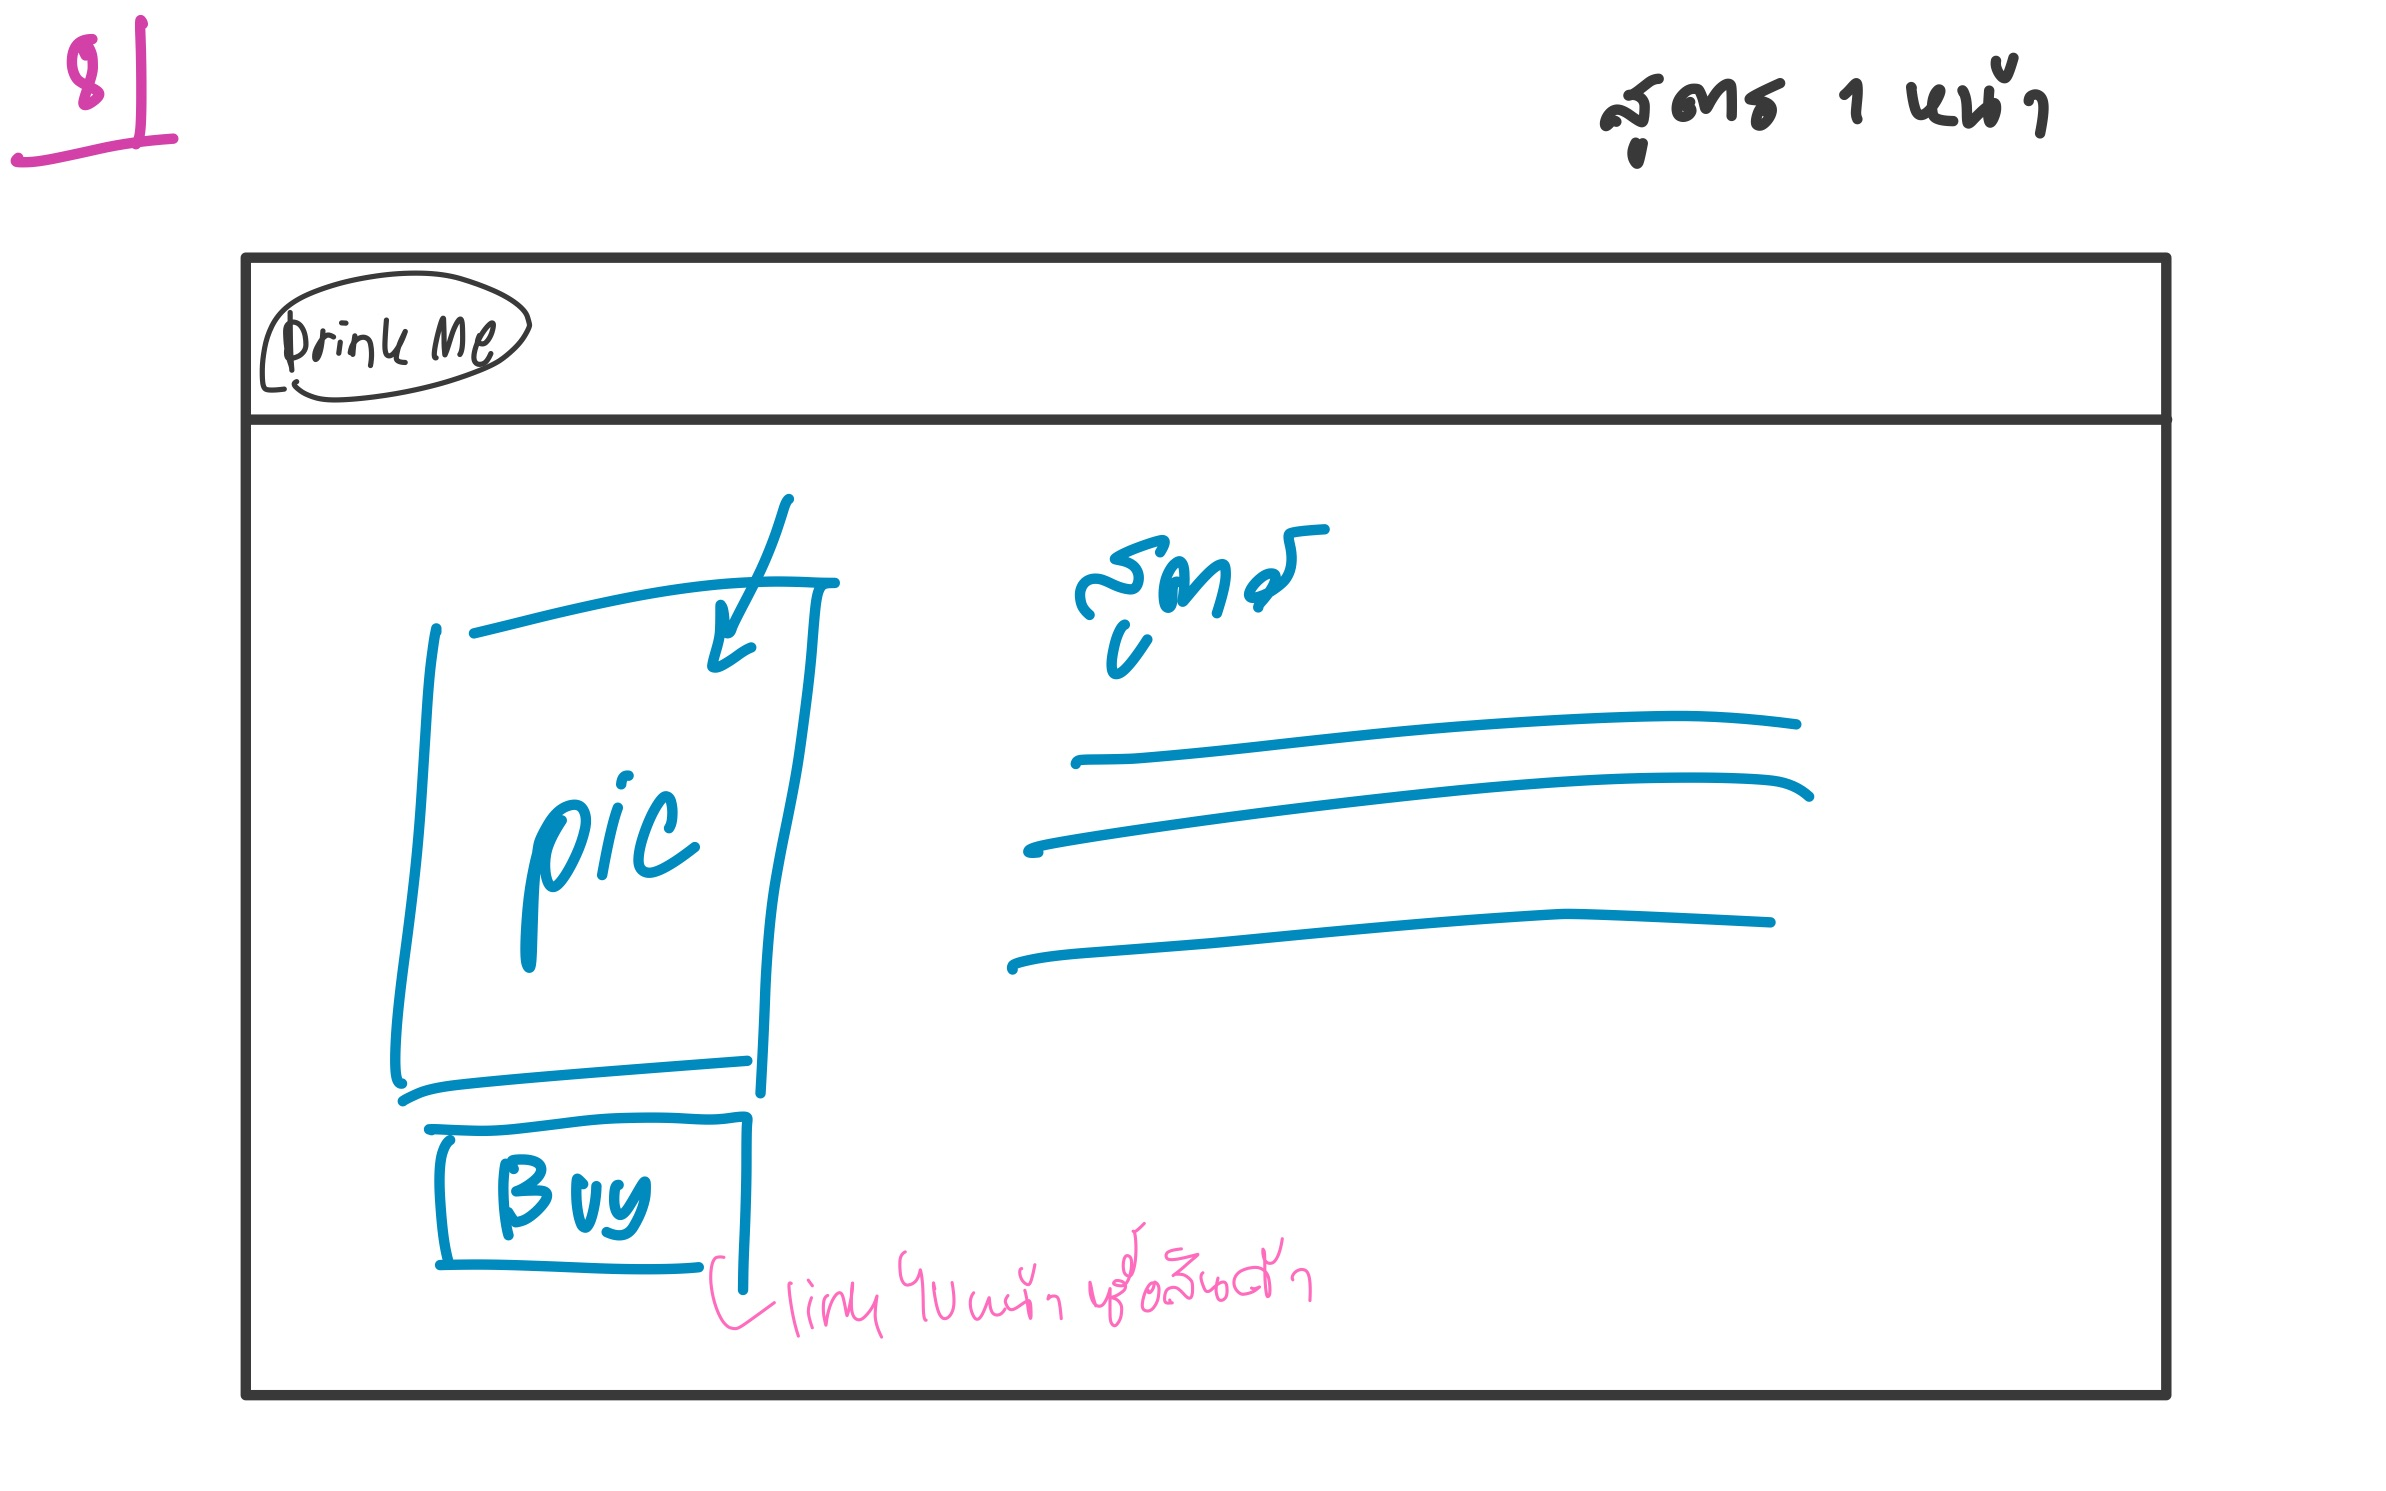 8
สูตร 1 หน้า
Drink Me
สูตร
pic
Buy
link ไปหน้า ซื้อสินค้า